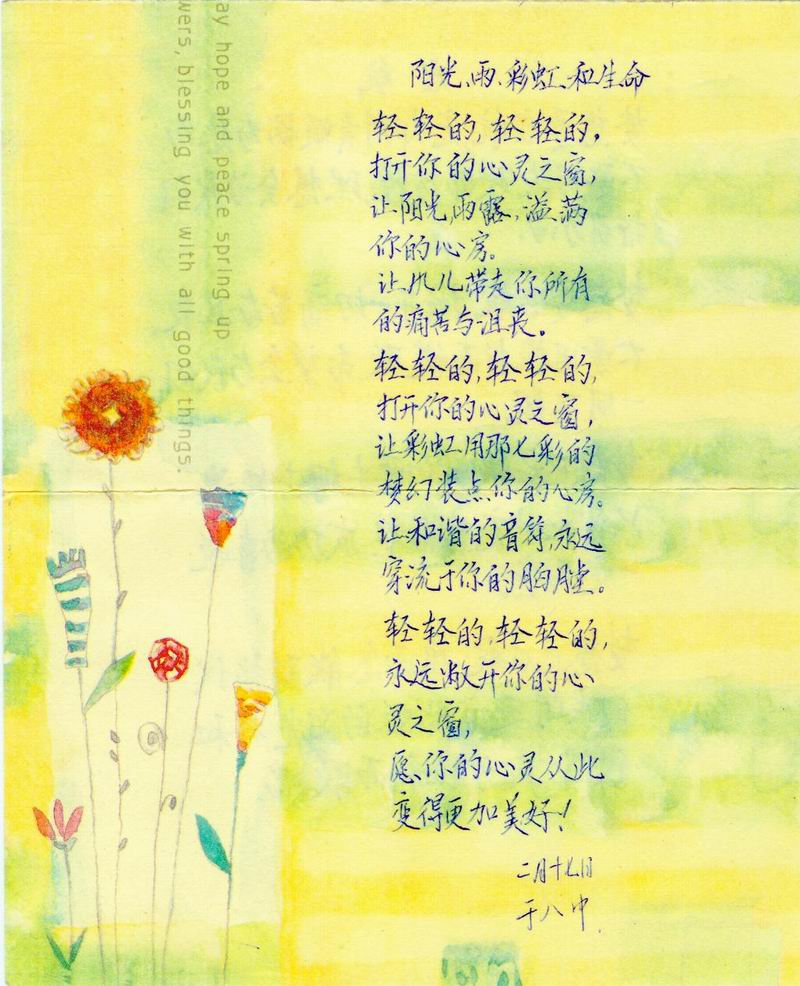 ay hope and peace spring up
wers, blessing you with all good things.
阳光、雨、彩虹、和生命
轻轻的,轻轻的,
打开你的心灵之窗,
让阳光,雨露,溢满
你的心房。
让风儿带走你所有
的痛苦与沮丧。
轻轻的,轻轻的,
打开你的心灵之窗,
让彩虹用那七彩的
梦幻装点你的心房。
让和谐的音符,永远
穿流于你的胸膛。
轻轻的,轻轻的,
永远敞开你的心
灵之窗,
愿你的心灵从此
变得更加美好!
二月十七日
于八中.